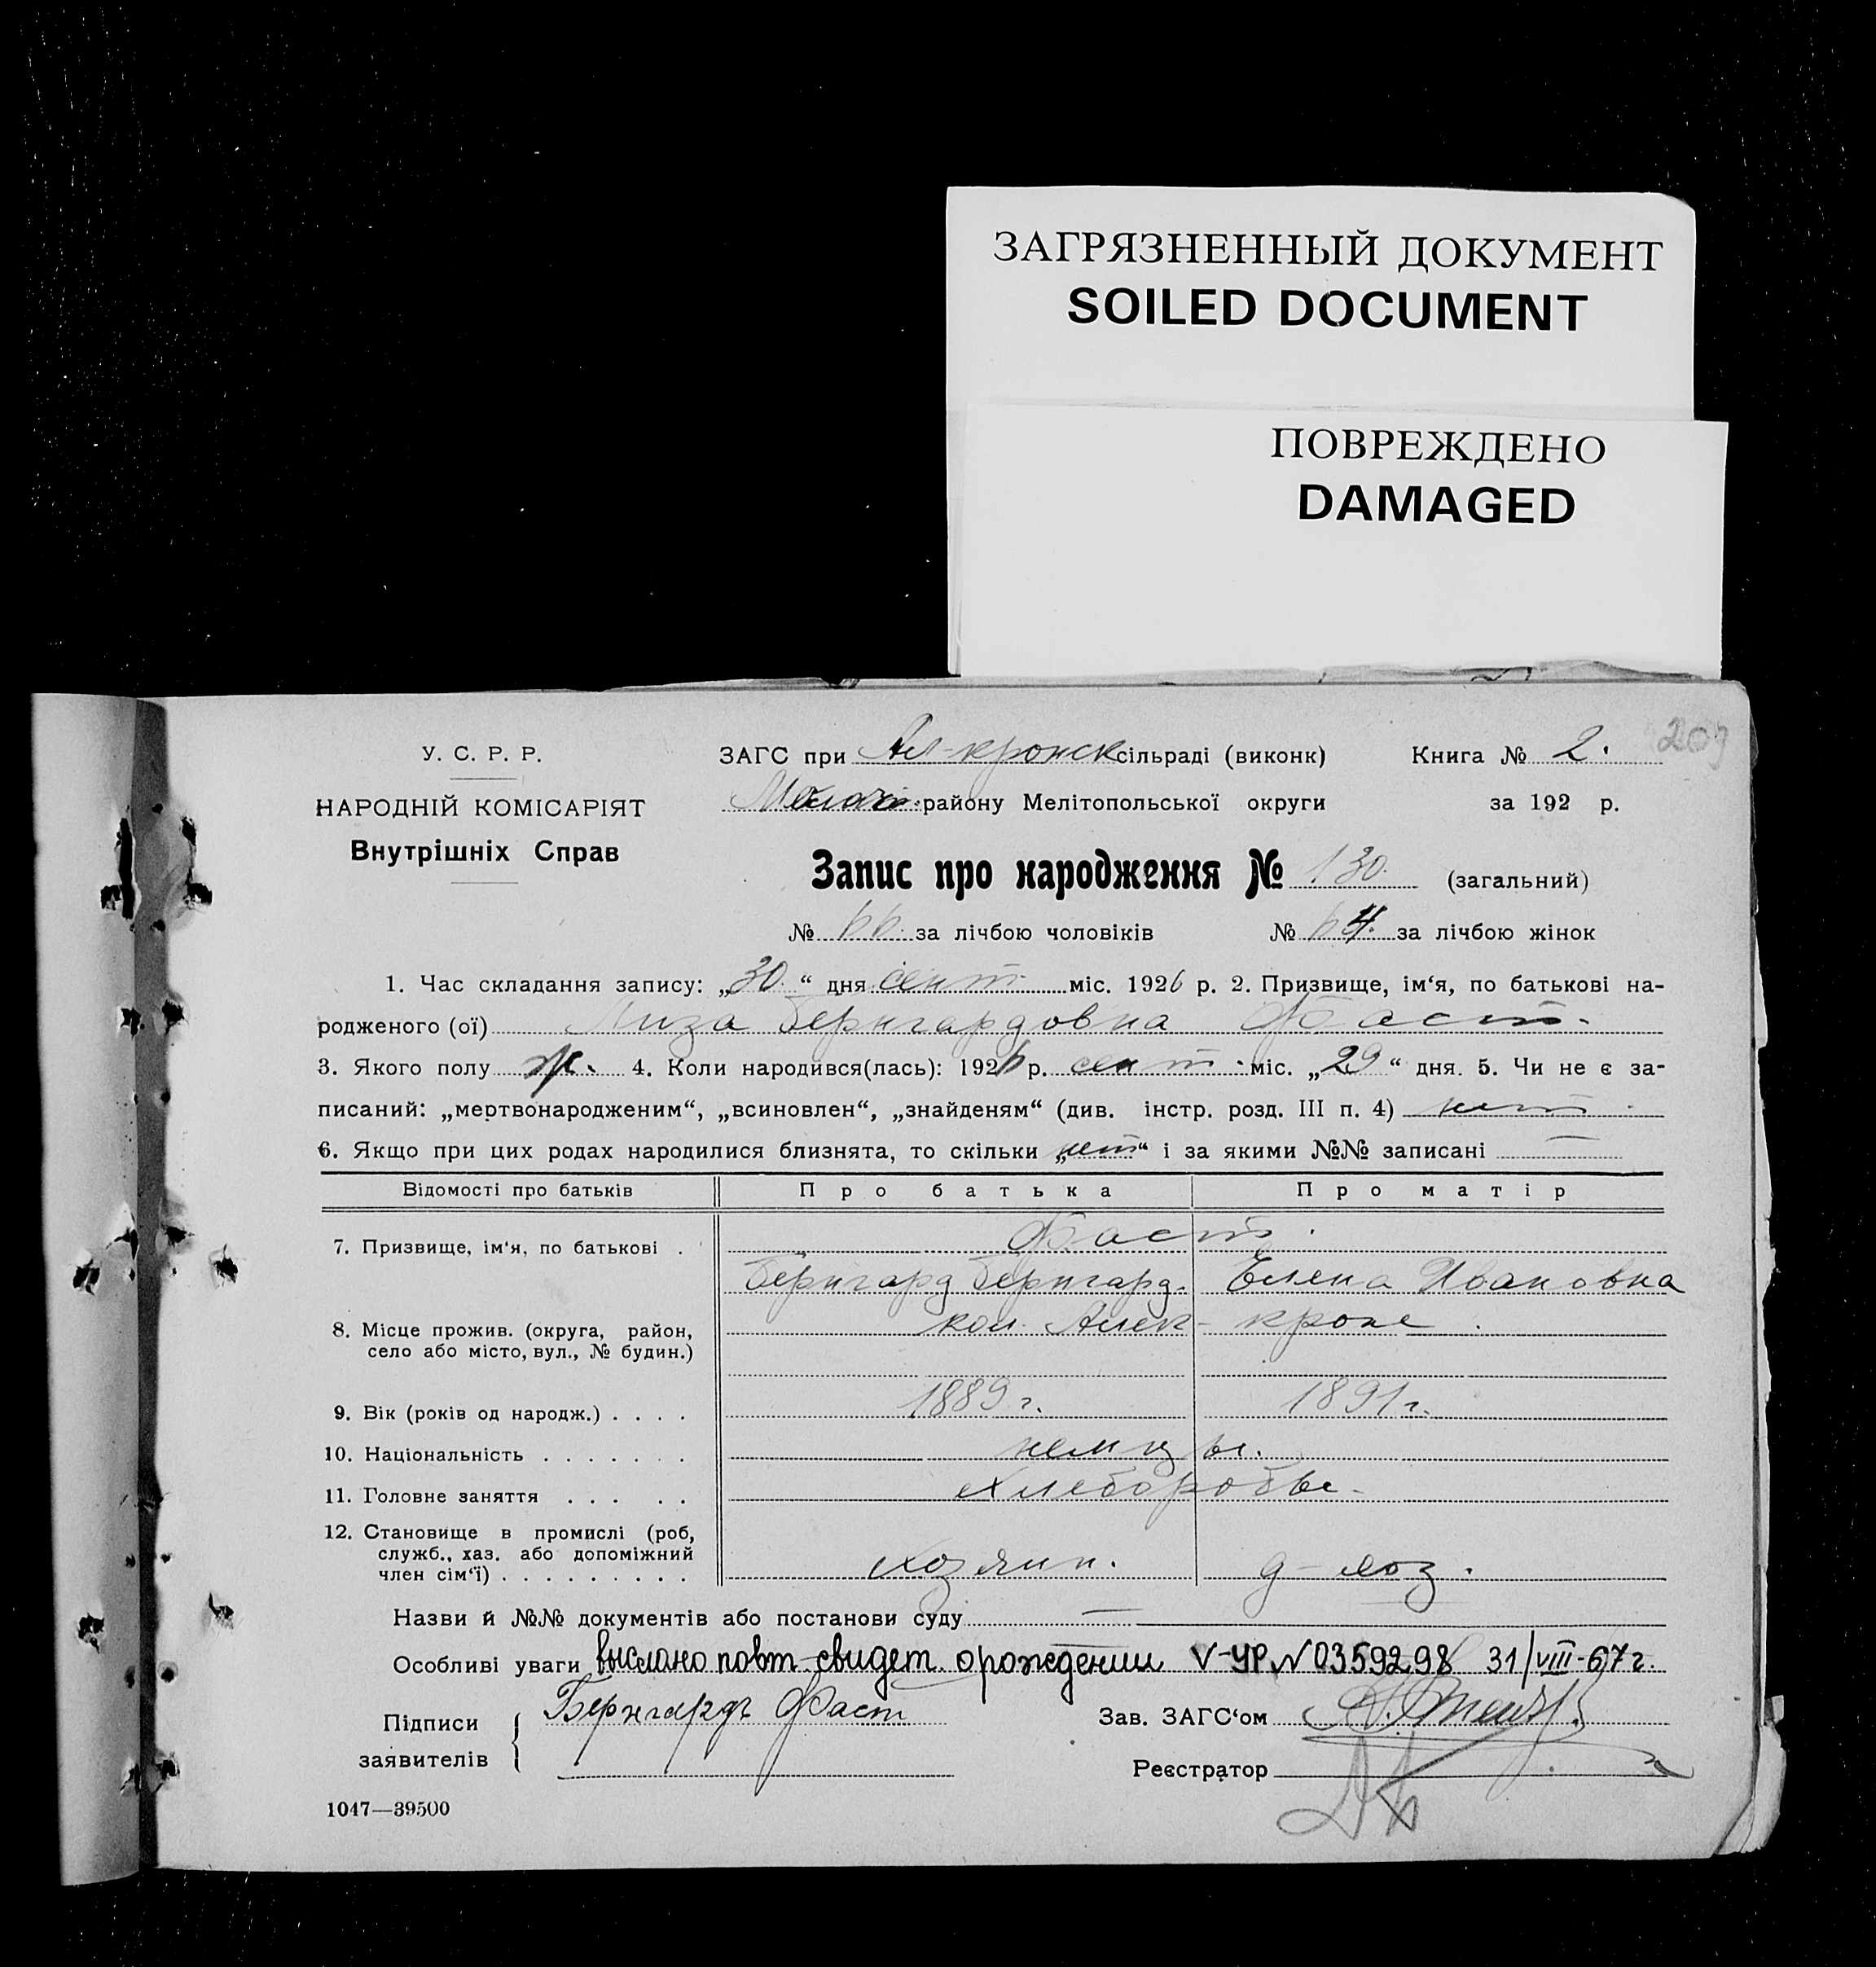 ЗАГРЯЗНЕННЫЙ ДОКУМЕНТ
SOILED DOCUMENT
ПОВРЕЖДЕНО
DAMAGED
209
У. С. Р. Р.
НАРОДНІЙ КОМІСАРІЯТ
Внутрішніх Справ
ЗАГС при Ал-кронск сільраді (виконк) Книга № 2.
Молоч. району Мелітопольської округи за 192 р.
Запис про народження № 130. (загальний)
№ 66. за лічбою чоловіків № 64. за лічбою жінок
1. Час складання запису: „30“ дня сент. міс. 1926 р. 2. Призвище, ім‘я, по батькові на-
родженого (ої) Лиза Бернгардовна Фаст.
3. Якого полу ж. 4. Коли народився(лась): 1926 р. сент. міс. „29“ дня. 5. Чи не є за-
писаний: „мертвонародженим“, „всиновлен“, „знайденям“ (див. інстр. розд. III п. 4) нет
6. Якщо при цих родах народилися близнята, то скільки „нет“ і за якими №№ записані —
Відомості про батьків Про батька Про матір
7. Призвище, ім‘я, по батькові . Фаст.
Бернгард Бернгард. Елена Ивановна
8. Місце прожив. (округа, район,
село або місто, вул., № будин.) кол. Алек-кроне.
9. Вік (років од народж.) . . . . 1889 г. 1891 г.
10. Національність . . . . . . . немцы.
11. Головне заняття . . . . . хлеборобы.
12. Становище в промислі (роб,
служб., хаз. або допоміжний
член сім‘ї) . . . . . . . . . хозяин. д-хоз.
Назви й №№ документів або постанови суду —
Особливі уваги выслано повт-свидет. о рождении V-УР N 0359298 31/VIII-67 г.
Підписи
заявителів
Бернгардъ Фаст
Зав. ЗАГС‘ом
Реєстратор
1047—39500